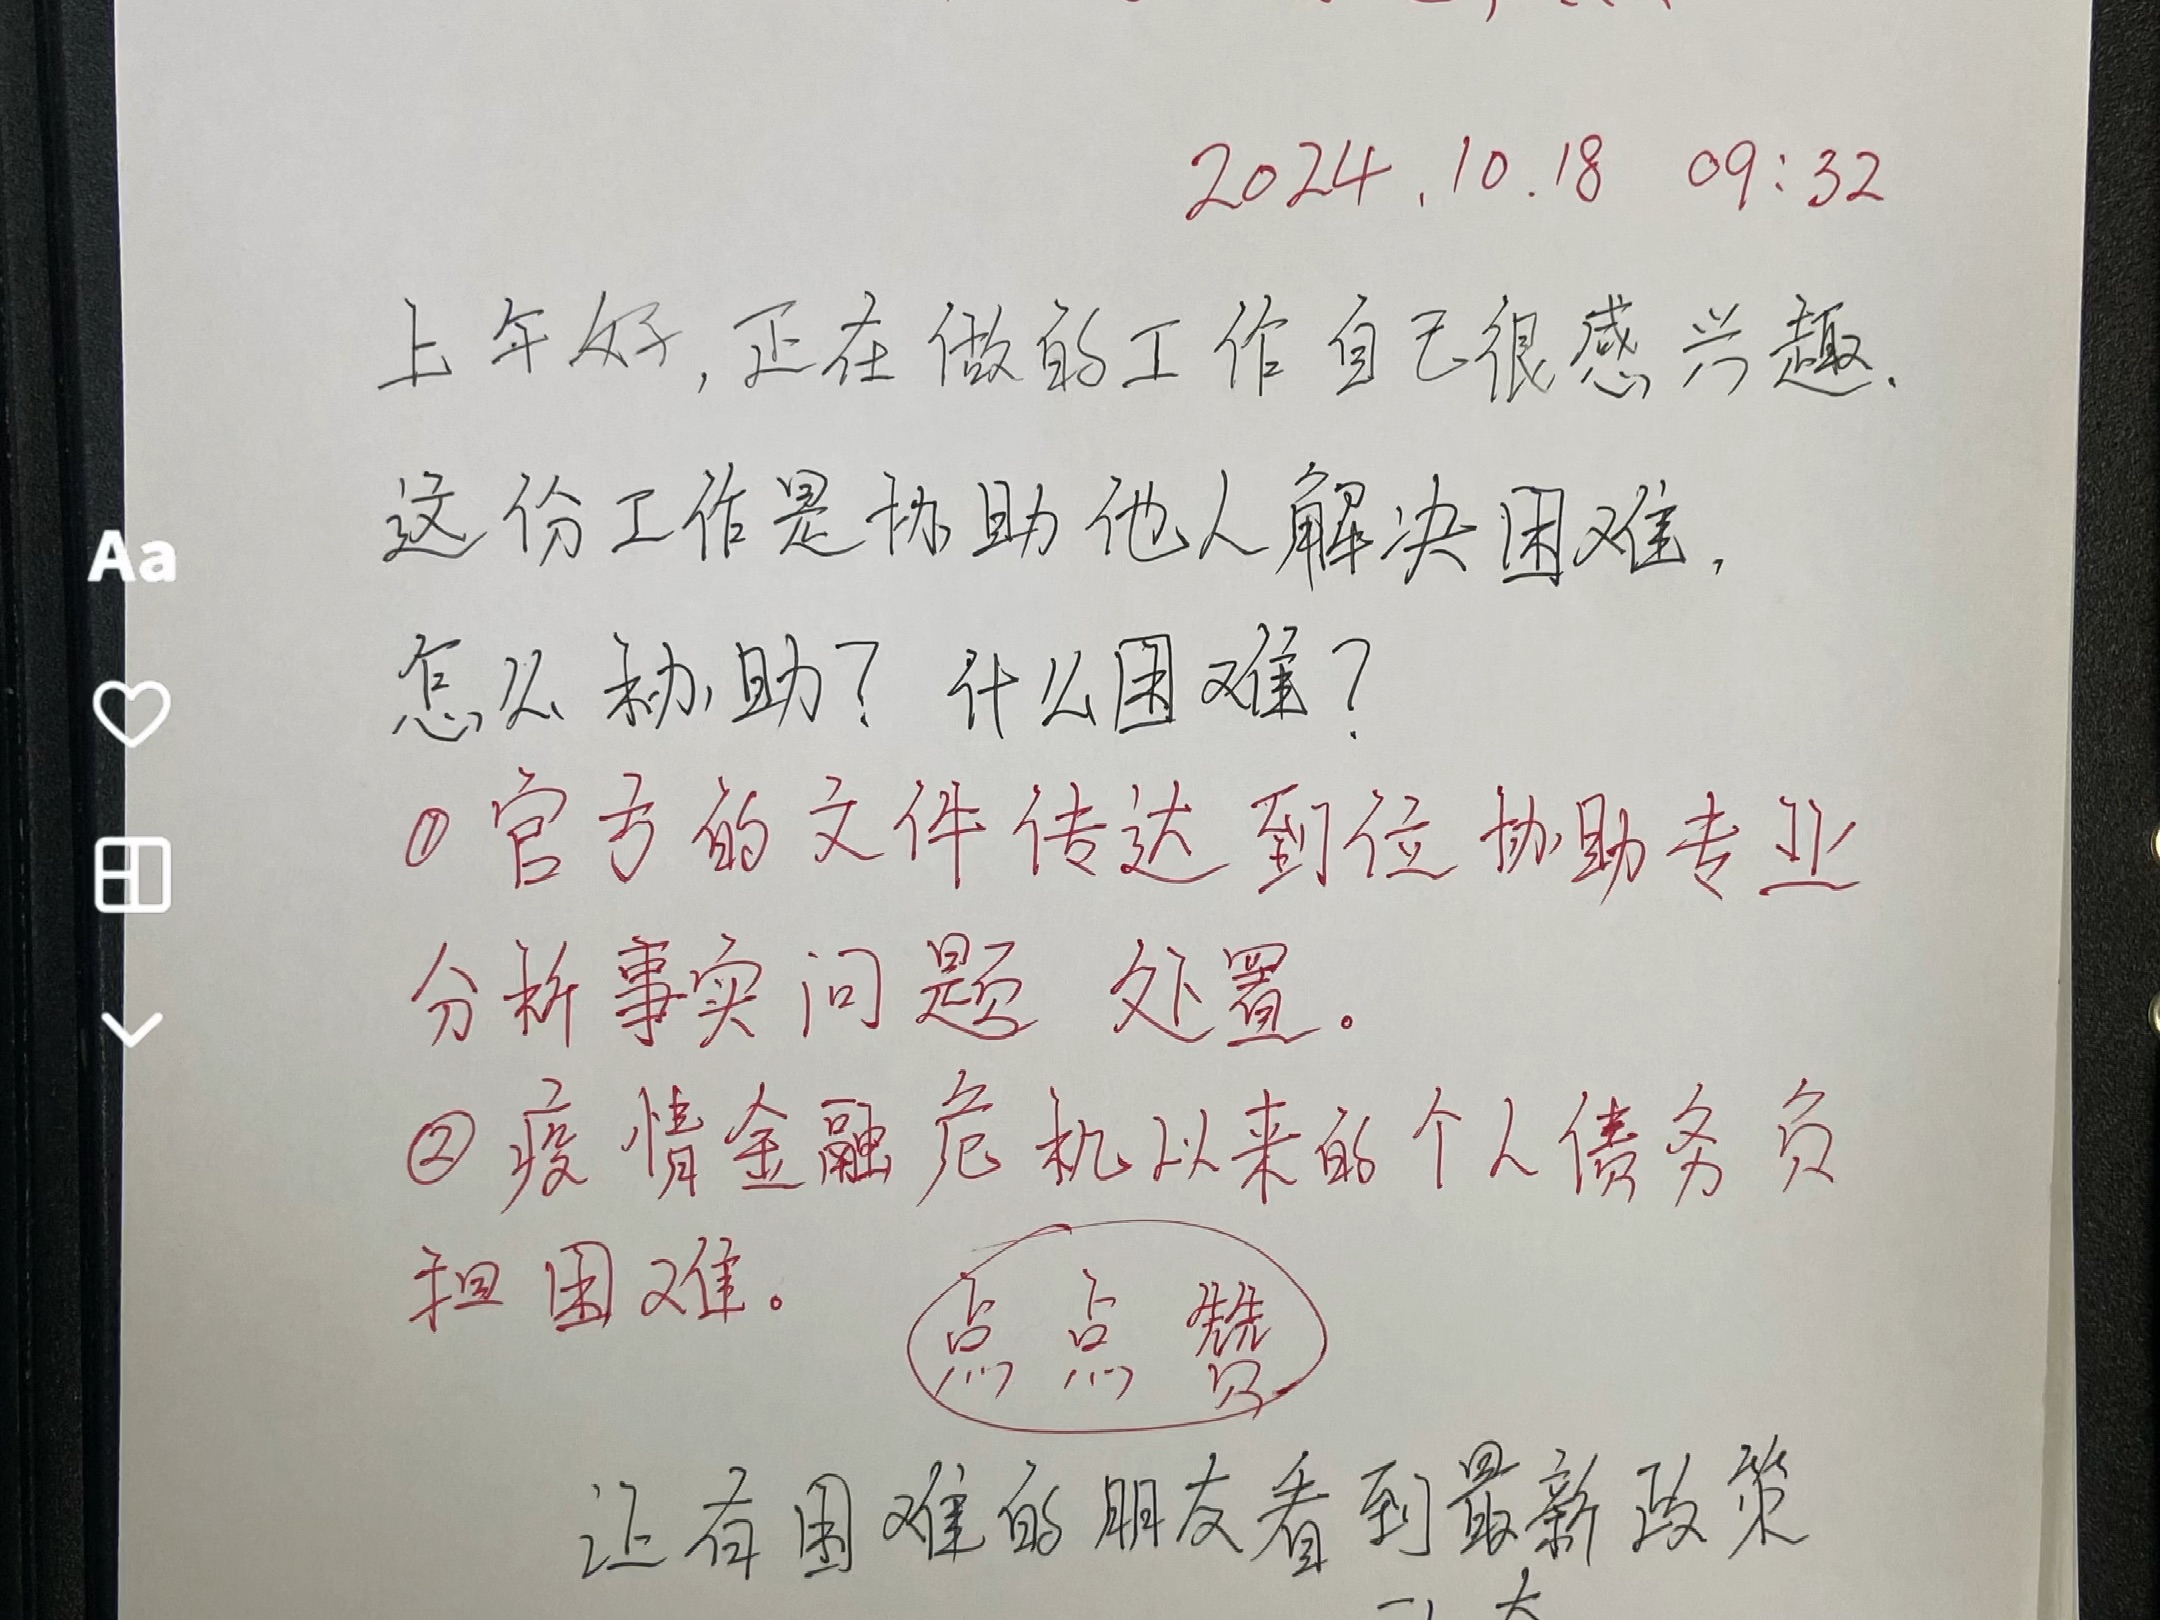 2024.10.18 09:32
上午好,正在做的工作自己很感兴趣.
这份工作是协助他人解决困难,
怎么协助?什么困难?
①官方的文件传达到位协助专业
分析事实问题 处置。
②疫情金融危机以来的个人债务负
担困难。
点点赞
让有困难的朋友看到最新政策
Aa